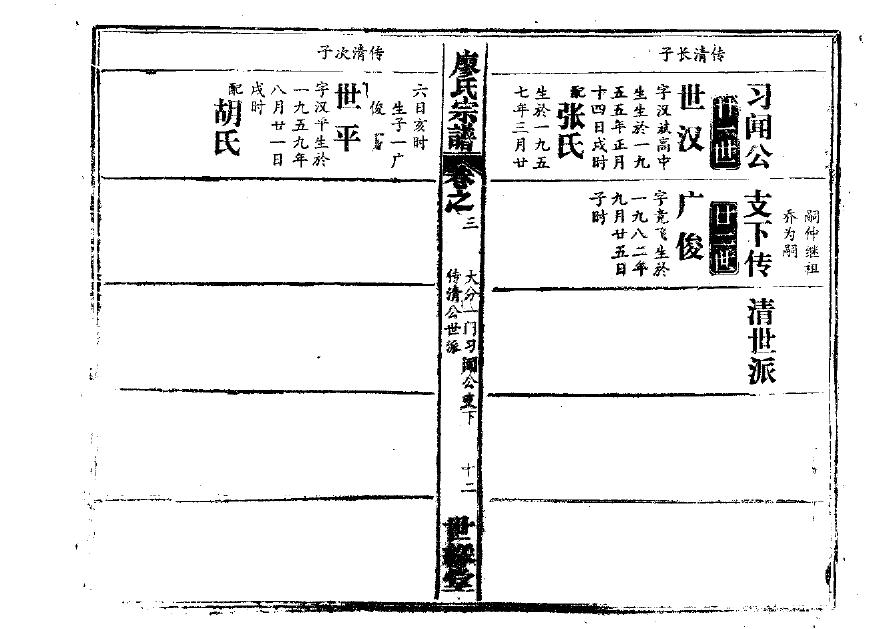 嗣仲继祖
乔为嗣
习闻公
支下传
清世派
传清长子
世汉
字汉斌高中
生生於一九
五五年正月
十四日戌时
配张氏
生於一九五
七年三月廿
廿二世
广俊
字竞飞生於
一九八二年
九月廿五日
子时
廖氏宗譜
卷之三
大分一门习闻公支下
传清公世派
十二
世綵堂
六日亥时
生子一广
俊
传清次子
世平
字汉平生於
一九五九年
八月廿一日
戌时
配胡氏